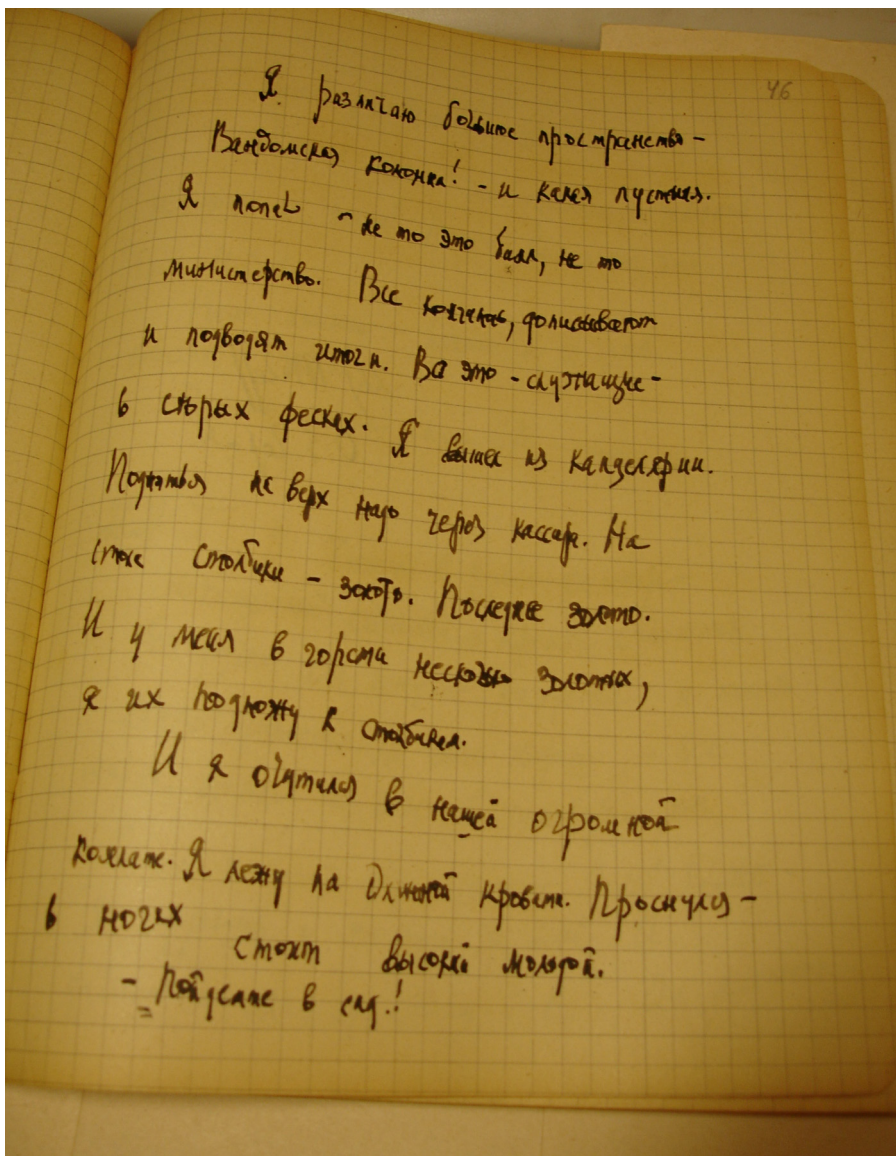 46
Я различаю большое пространство –
Вандомская колонна! – и какая пустыня.
Я попал – не то это банк, не то
министерство. Все кончилось, дописывают
и подводят итоги. Все это – служащие –
в серых фесках. Я вышел из канцелярии.
Подняться на верх надо через кассира. На
столе столбики – золото. Последнее золото.
И у меня в горсти несколько золотых,
я их подложу к столбикам.
И я очутился в нашей огромной
комнате. Я лежу на длинной кровати. Проснулся –
в ногах
стоит высокий молодой.
– Пойдемте в сад!